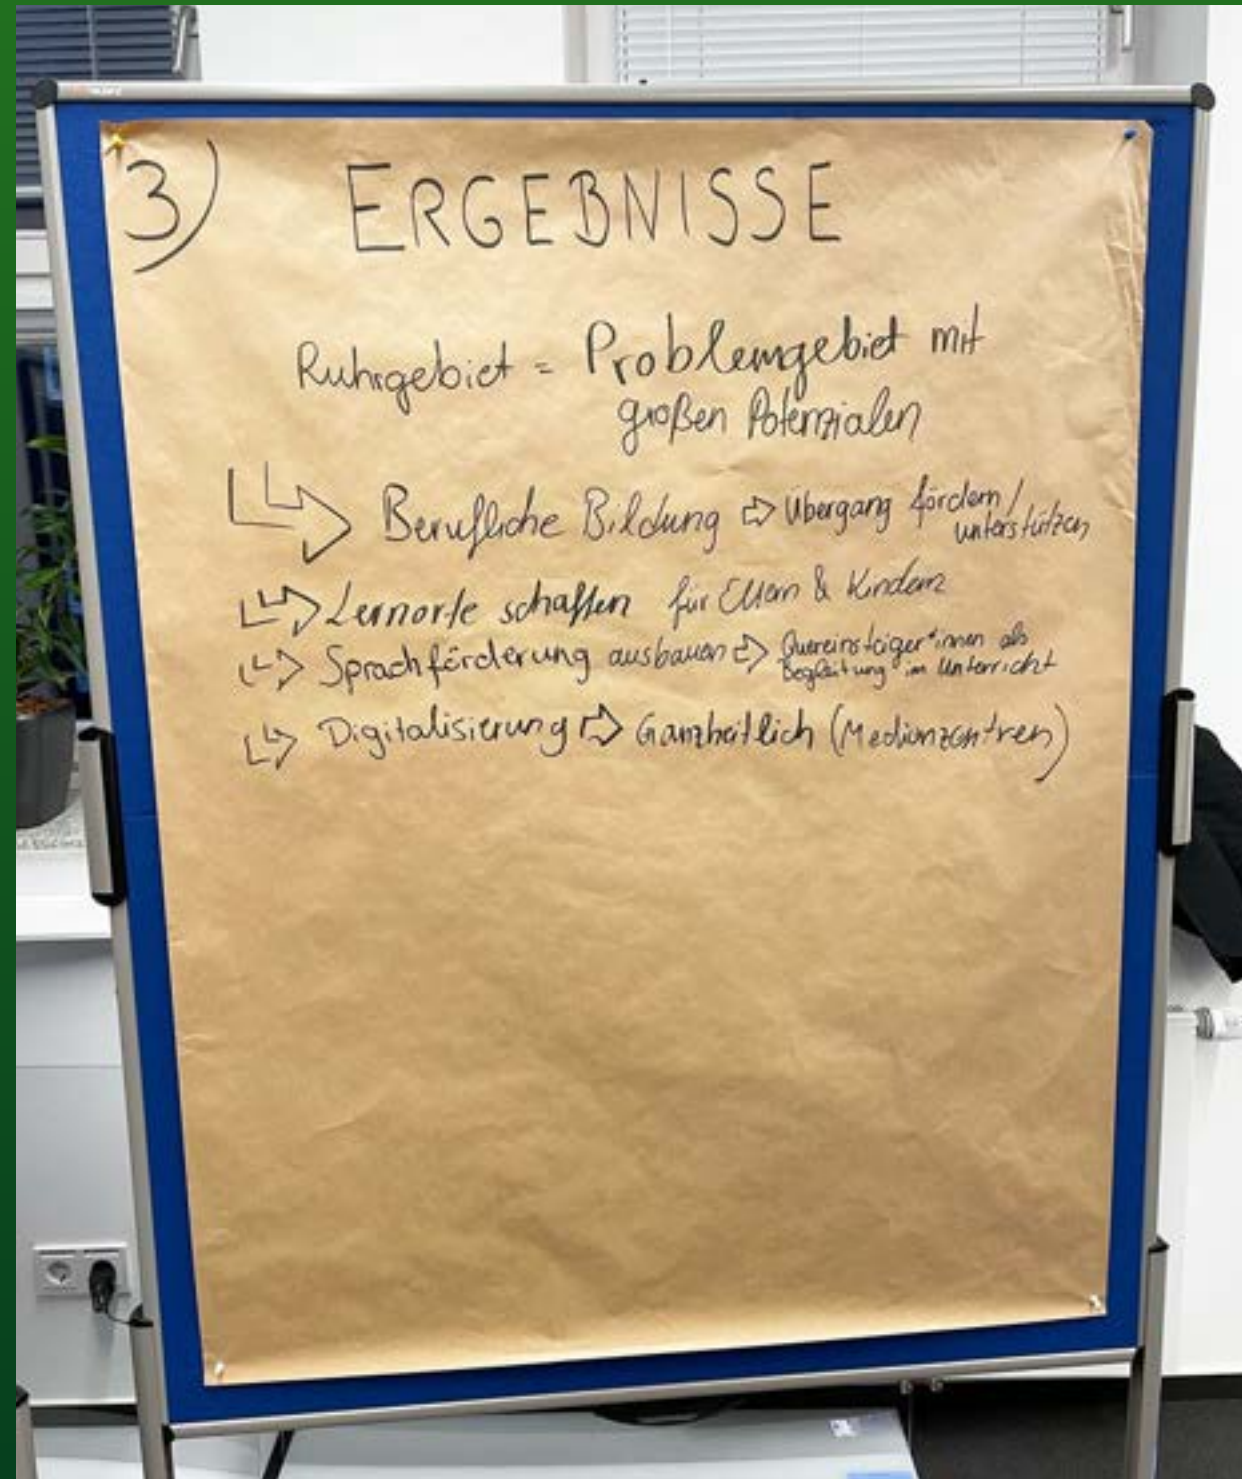 3) ERGEBNISSE
Ruhrgebiet = Problemgebiet mit
großen Potenzialen
Berufliche Bildung ⇨ Übergang fördern/
unterstützen
Lernorte schaffen für Eltern & Kindern
Sprachförderung ausbauen ⇨ Quereinsteiger*innen als
Begleitung im Unterricht
Digitalisierung ⇨ Ganzheitlich (Medienzentren)